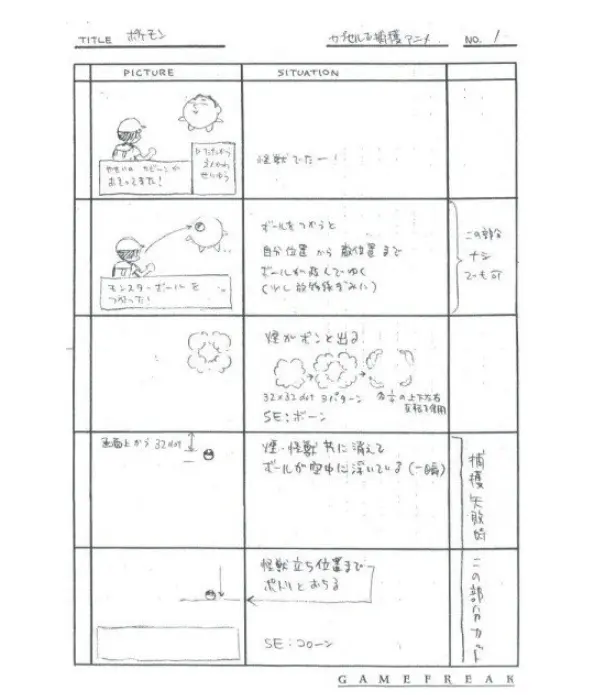 TITLE ポケモン
カプセルで捕獲アニメ
NO. 1
PICTURE
SITUATION
やせいの カビーンが
おそってきた!
どうぐ
せいゆう
怪獣でたー!
モンスターボール を
つかった!
ボールをつかうと
自分位置 から 敵位置まで
ボールが飛んでゆく
(少し放物線ぎみに)
この部分
ナシ
でも可
煙がボンと出る
32×32dot 3パターン
各々の上下左右
反転を使用
SE:ボーン
画面上から 32dot
煙・怪獣 共に消えて
ボールが空中に浮いている(一瞬)
捕獲失敗時
この部分カット
怪獣立ち位置まで
ポトリとおちる
SE:コローン
GAMEFREAK